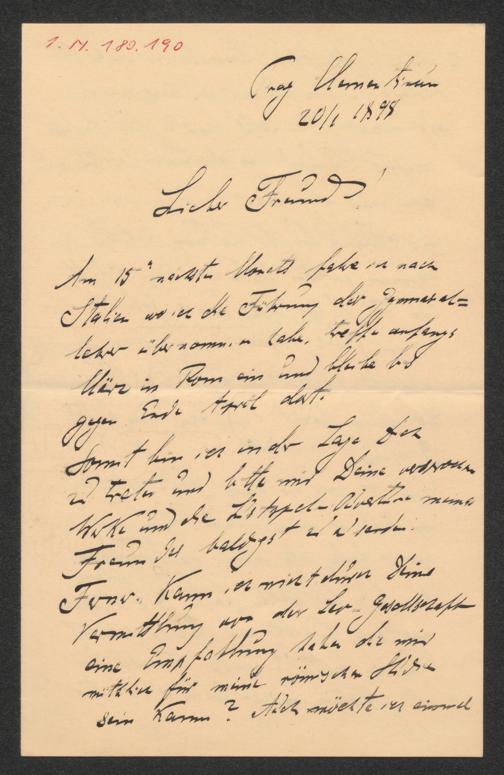 1. N. 180.190
Prag Clementinum
20/1 1898
Lieber Freund!
Am 15n nächsten Monats fahre ich nach
Italien wo ich die Führung der Gymnasial=
lehrer übernommen habe, treffe anfangs
März in Rom ein und bleibe bis
gegen Ende April dort.
Somit bin ich in der Lage Dich
zu treten und bitte mir Deine
Werke und die meines
Freundes baldigst zu senden.
Ferner kann ich nicht durch Deine
Vermittlung von der Leo-Gesellschaft
eine Empfehlung haben die mir
nützlich für meine römischen
sein kann? Auch möchte ich einmal